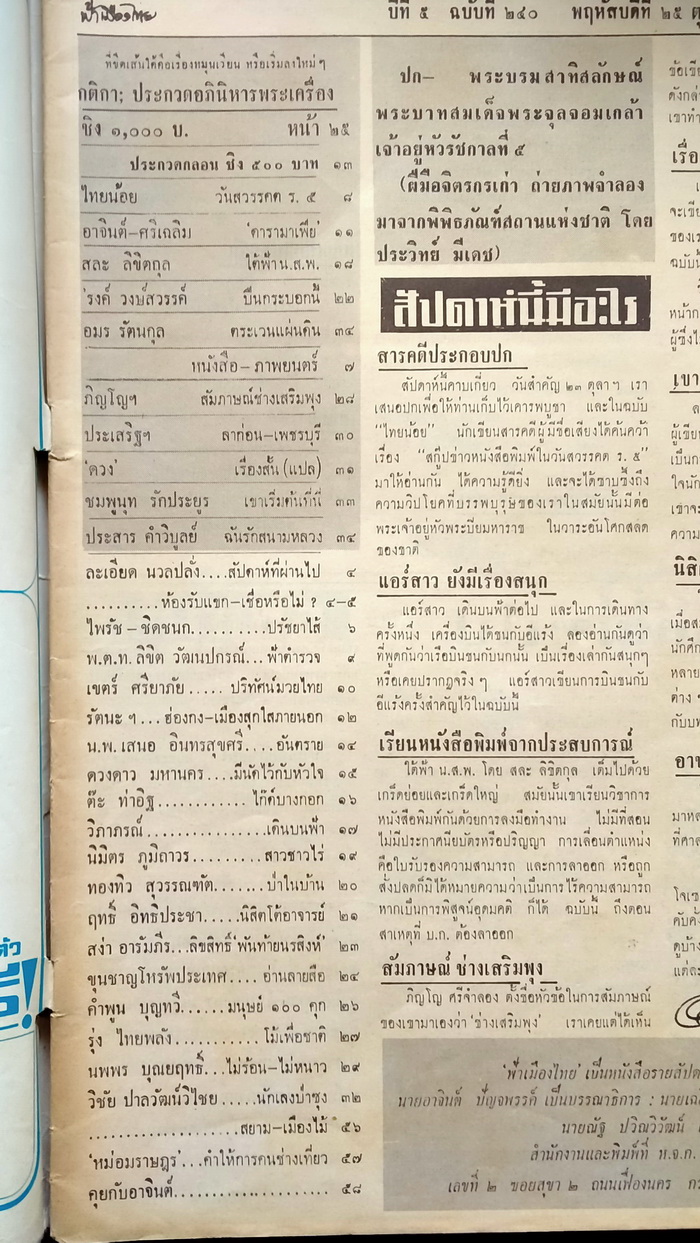 ฟ้าเมืองไทย
ปีที่ ๕ ฉบับที่ ๒๔๐ พฤหัสบดีที่ ๒๕
ที่ขีดเส้นใต้คือเรื่องหมุนเวียน หรือเริ่มลงใหม่ ๆ
กติกา; ประกวดอภินิหารพระเครื่อง
ชิง ๑,๐๐๐ บ. หน้า ๒๕
ประกวดกลอน ชิง ๕๐๐ บาท ๑๓
ไทยน้อย วันสวรรคต ร. ๕ ๘
อาจินต์–ศรีเฉลิม 'ดารามาเฟีย' ๑๑
สละ ลิขิตกุล ใต้ฟ้า น.ส.พ. ๑๘
'รงค์ วงษ์สวรรค์ ปืนกระบอกนี้ ๒๒
อมร รัตนกุล ตระเวนแผ่นดิน ๓๔
หนังสือ–ภาพยนตร์ ๗
ภิญโญฯ สัมภาษณ์ช่างเสริมพุง ๒๘
ประเสริฐฯ ลาก่อน–เพชรบุรี ๓๐
'ดวง' เรื่องสั้น (แปล) ๓๑
ชมพูนุท รักประยูร เขาเริ่มต้นที่นี่ ๓๓
ประสาร คำวิบูลย์ ฉันรักสนามหลวง ๓๔
ละเอียด นวลปลั่ง....สัปดาห์ที่ผ่านไป ๔
..........ห้องรับแขก–เชื่อหรือไม่ ? ๔–๕
ไพรัช – ชิดชนก..........ปรัชยาไส้ ๖
พ.ต.ท. ลิขิต วัฒนปกรณ์...ฟ้าตำรวจ ๙
เขตร์ ศรียาภัย..... ปริทัศน์มวยไทย ๑๐
รัตนะ ฯ...ฮ่องกง–เมืองสุกใสภายนอก ๑๒
น.พ. เสนอ อินทรสุขศรี....อันตราย ๑๔
ดวงดาว มหานคร....มีนัดไว้กับหัวใจ ๑๕
ต๊ะ ท่าอิฐ............ไก๊ด์บางกอก ๑๖
วิภาภรณ์................เดินบนฟ้า ๑๗
นิมิตร ภูมิถาวร.........สาวชาวไร่ ๑๙
ทองทิว สุวรรณทัต.......ป่าในบ้าน ๒๐
ฤทธิ์ อิทธิประชา.....นิสิตโต้อาจารย์ ๒๑
สง่า อารัมภีร...ลิขสิทธิ์ 'พันท้ายนรสิงห์' ๒๓
ขุนชาญโหรัพประเทศ.... อ่านลายสือ ๒๔
คำพูน บุญทวี......มนุษย์ ๑๐๐ คุก ๒๖
รุ่ง ไทยพลัง...........โม้เพื่อชาติ ๒๗
นพพร บุณยฤทธิ์...ไม่ร้อน–ไม่หนาว ๒๙
วิชัย ปาลวัฒน์วิไชย.....นักเลงป่าซุง ๓๒
....................สยาม–เมืองไม้ ๕๖
'หม่อมราษฎร'...คำให้การคนช่างเที่ยว ๕๗
คุยกับอาจินต์...................... ๕๘
ปก– พระบรมสาทิสลักษณ์
พระบาทสมเด็จพระจุลจอมเกล้า
เจ้าอยู่หัวรัชกาลที่ ๕
(ฝีมือจิตรกรเก่า ถ่ายภาพจำลอง
มาจากพิพิธภัณฑ์สถานแห่งชาติ โดย
ประวิทย์ มีเดช)
สัปดาห์นี้มีอะไร
สารคดีประกอบปก
สัปดาห์นี้คาบเกี่ยว วันสำคัญ ๒๓ ตุลาฯ เรา
เสนอปกเพื่อให้ท่านเก็บไว้เคารพบูชา และในฉบับ
"ไทยน้อย" นักเขียนสารคดีผู้มีชื่อเสียงได้ค้นคว้า
เรื่อง "สกู๊ปข่าวหนังสือพิมพ์ในวันสวรรคต ร. ๕"
มาให้อ่านกัน ได้ความรู้ดียิ่ง และจะได้ซาบซึ้งถึง
ความวิปโยคที่บรรพบุรุษของเราในสมัยนั้นมีต่อ
พระเจ้าอยู่หัวพระปิยมหาราช ในวาระอันโศกสลด
ของชาติ
แอร์สาว ยังมีเรื่องสนุก
แอร์สาว เดินบนฟ้าต่อไป และในการเดินทาง
ครั้งหนึ่ง เครื่องบินได้ชนกับอีแร้ง ลองอ่านกันดูว่า
ที่พูดกันว่าเรือบินชนกับนกนั้น เป็นเรื่องเล่ากันสนุกๆ
หรือเคยปรากฏจริง ๆ แอร์สาวเขียนการบินชนกับ
อีแร้งครั้งสำคัญไว้ในฉบับนี้
เรียนหนังสือพิมพ์จากประสบการณ์
ใต้ฟ้า น.ส.พ. โดย สละ ลิขิตกุล เต็มไปด้วย
เกร็ดย่อยและเกร็ดใหญ่ สมัยนั้นเขาเรียนวิชาการ
หนังสือพิมพ์กันด้วยการลงมือทำงาน ไม่มีที่สอน
ไม่มีประกาศนียบัตรหรือปริญญา การเลื่อนตำแหน่ง
คือใบรับรองความสามารถ และการลาออก หรือถูก
สั่งปลดก็มิได้หมายความว่าเป็นการไร้ความสามารถ
หากเป็นการพิสูจน์อุดมคติ ก็ได้ ฉบับนี้ ถึงตอน
สาเหตุที่ บ.ก. ต้องลาออก
สัมภาษณ์ ช่างเสริมพุง
ภิญโญ ศรีจำลอง ตั้งชื่อหัวข้อในการสัมภาษณ์
ของเขามาเองว่า 'ช่างเสริมพุง' เราเคยแต่ได้เห็น
'ฟ้าเมืองไทย' เป็นหนังสือรายสัปด
นายอาจินต์ ปัญจพรรค์ เป็นบรรณาธิการ : นายเฉ
นายณัฐ ปวิณวิวัฒน์
สำนักงานและพิมพ์ที่ ห.จ.ก.
เลขที่ ๒ ซอยสุขา ๒ ถนนเฟื่องนคร ก